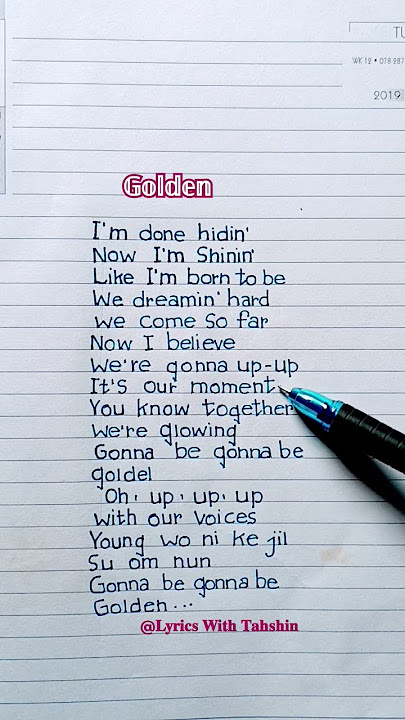 TU
WK 12 • 078 287
2019
Golden
I'm done hidin'
Now I'm Shinin'
Like I'm born to be
We dreamin' hard
we come So far
Now I believe
We're gonna up-up
It's our moment
You know together
We're glowing
Gonna be gonna be
goldel
Oh, up, up, up
with our voices
Young wo ni ke jil
Su om nun
Gonna be gonna be
Golden...
@Lyrics With Tahshin